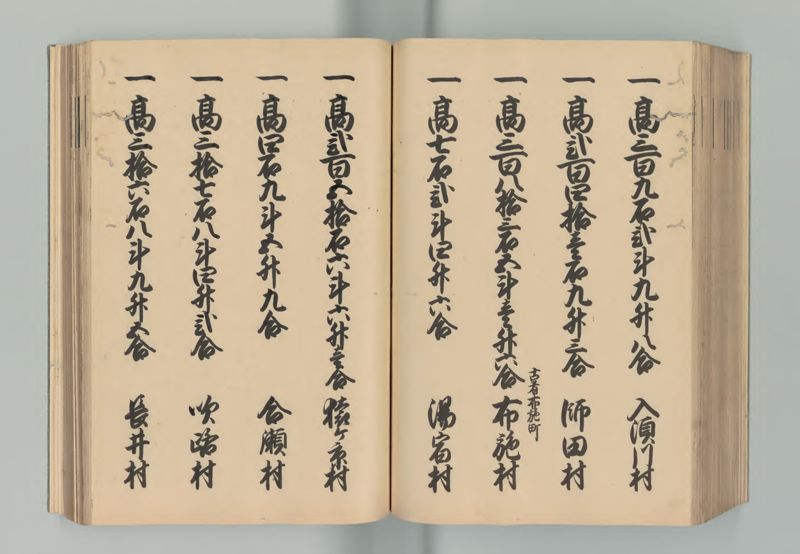 一高三百九石弐斗九升八合 入須川村
一高弐百四拾壱石九升三合 師田村
一高三百八拾三石五斗壱升六合 布施村
古者布施町
一高七石弐斗四升六合 湯宿村
一高弐百五拾石六斗六升壱合 猿ヶ京村
一高四石九斗五升九合 合瀬村
一高三拾七石八斗四升弐合 吹路村
一高三拾六石八斗九升五合 長井村